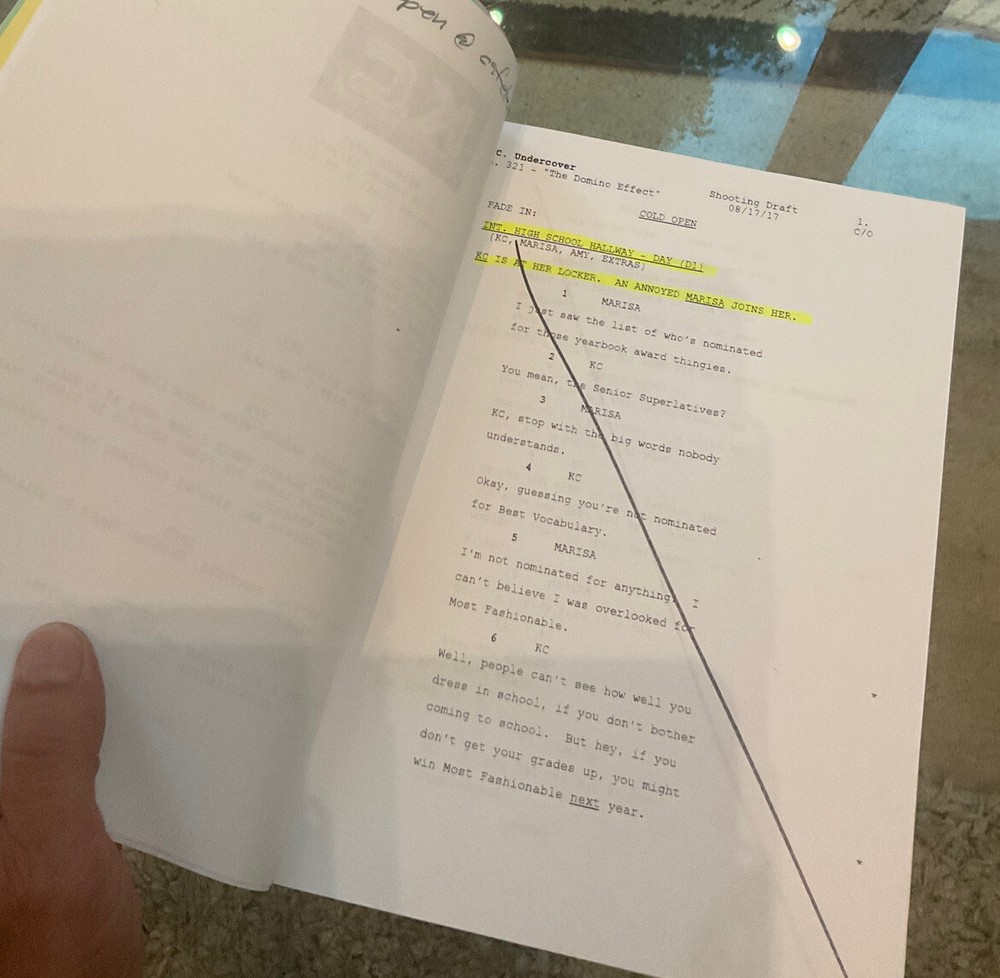 pen @
C. Undercover
. 321 - "The Domino Effect"
Shooting Draft
08/17/17
1.
C/O
COLD OPEN
FADE IN:
INT. HIGH SCHOOL HALLWAY - DAY (D1)
(KC, MARISA, AMY, EXTRAS)
KC IS AT HER LOCKER. AN ANNOYED MARISA JOINS HER.
1 MARISA
I just saw the list of who's nominated
for those yearbook award thingies.
2 KC
You mean, the Senior Superlatives?
3 MARISA
KC, stop with the big words nobody
understands.
4 KC
Okay, guessing you're not nominated
for Best Vocabulary.
5 MARISA
I'm not nominated for anything. I
can't believe I was overlooked for
Most Fashionable.
6 KC
Well, people can't see how well you
dress in school, if you don't bother
coming to school. But hey, if you
don't get your grades up, you might
*
win Most Fashionable next year.
*